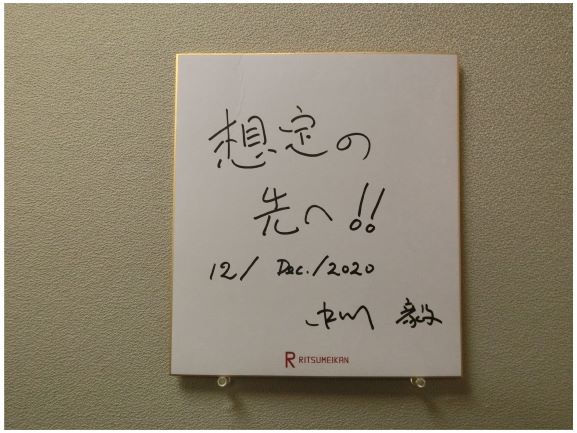 想定の
先へ!!
12/ Dec./2020
中川 毅
R RITSUMEIKAN